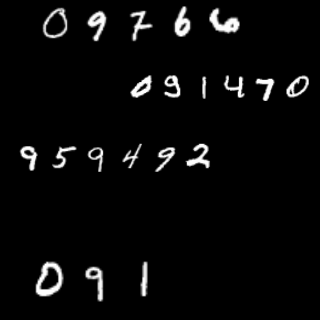 09766
091470
959492
091